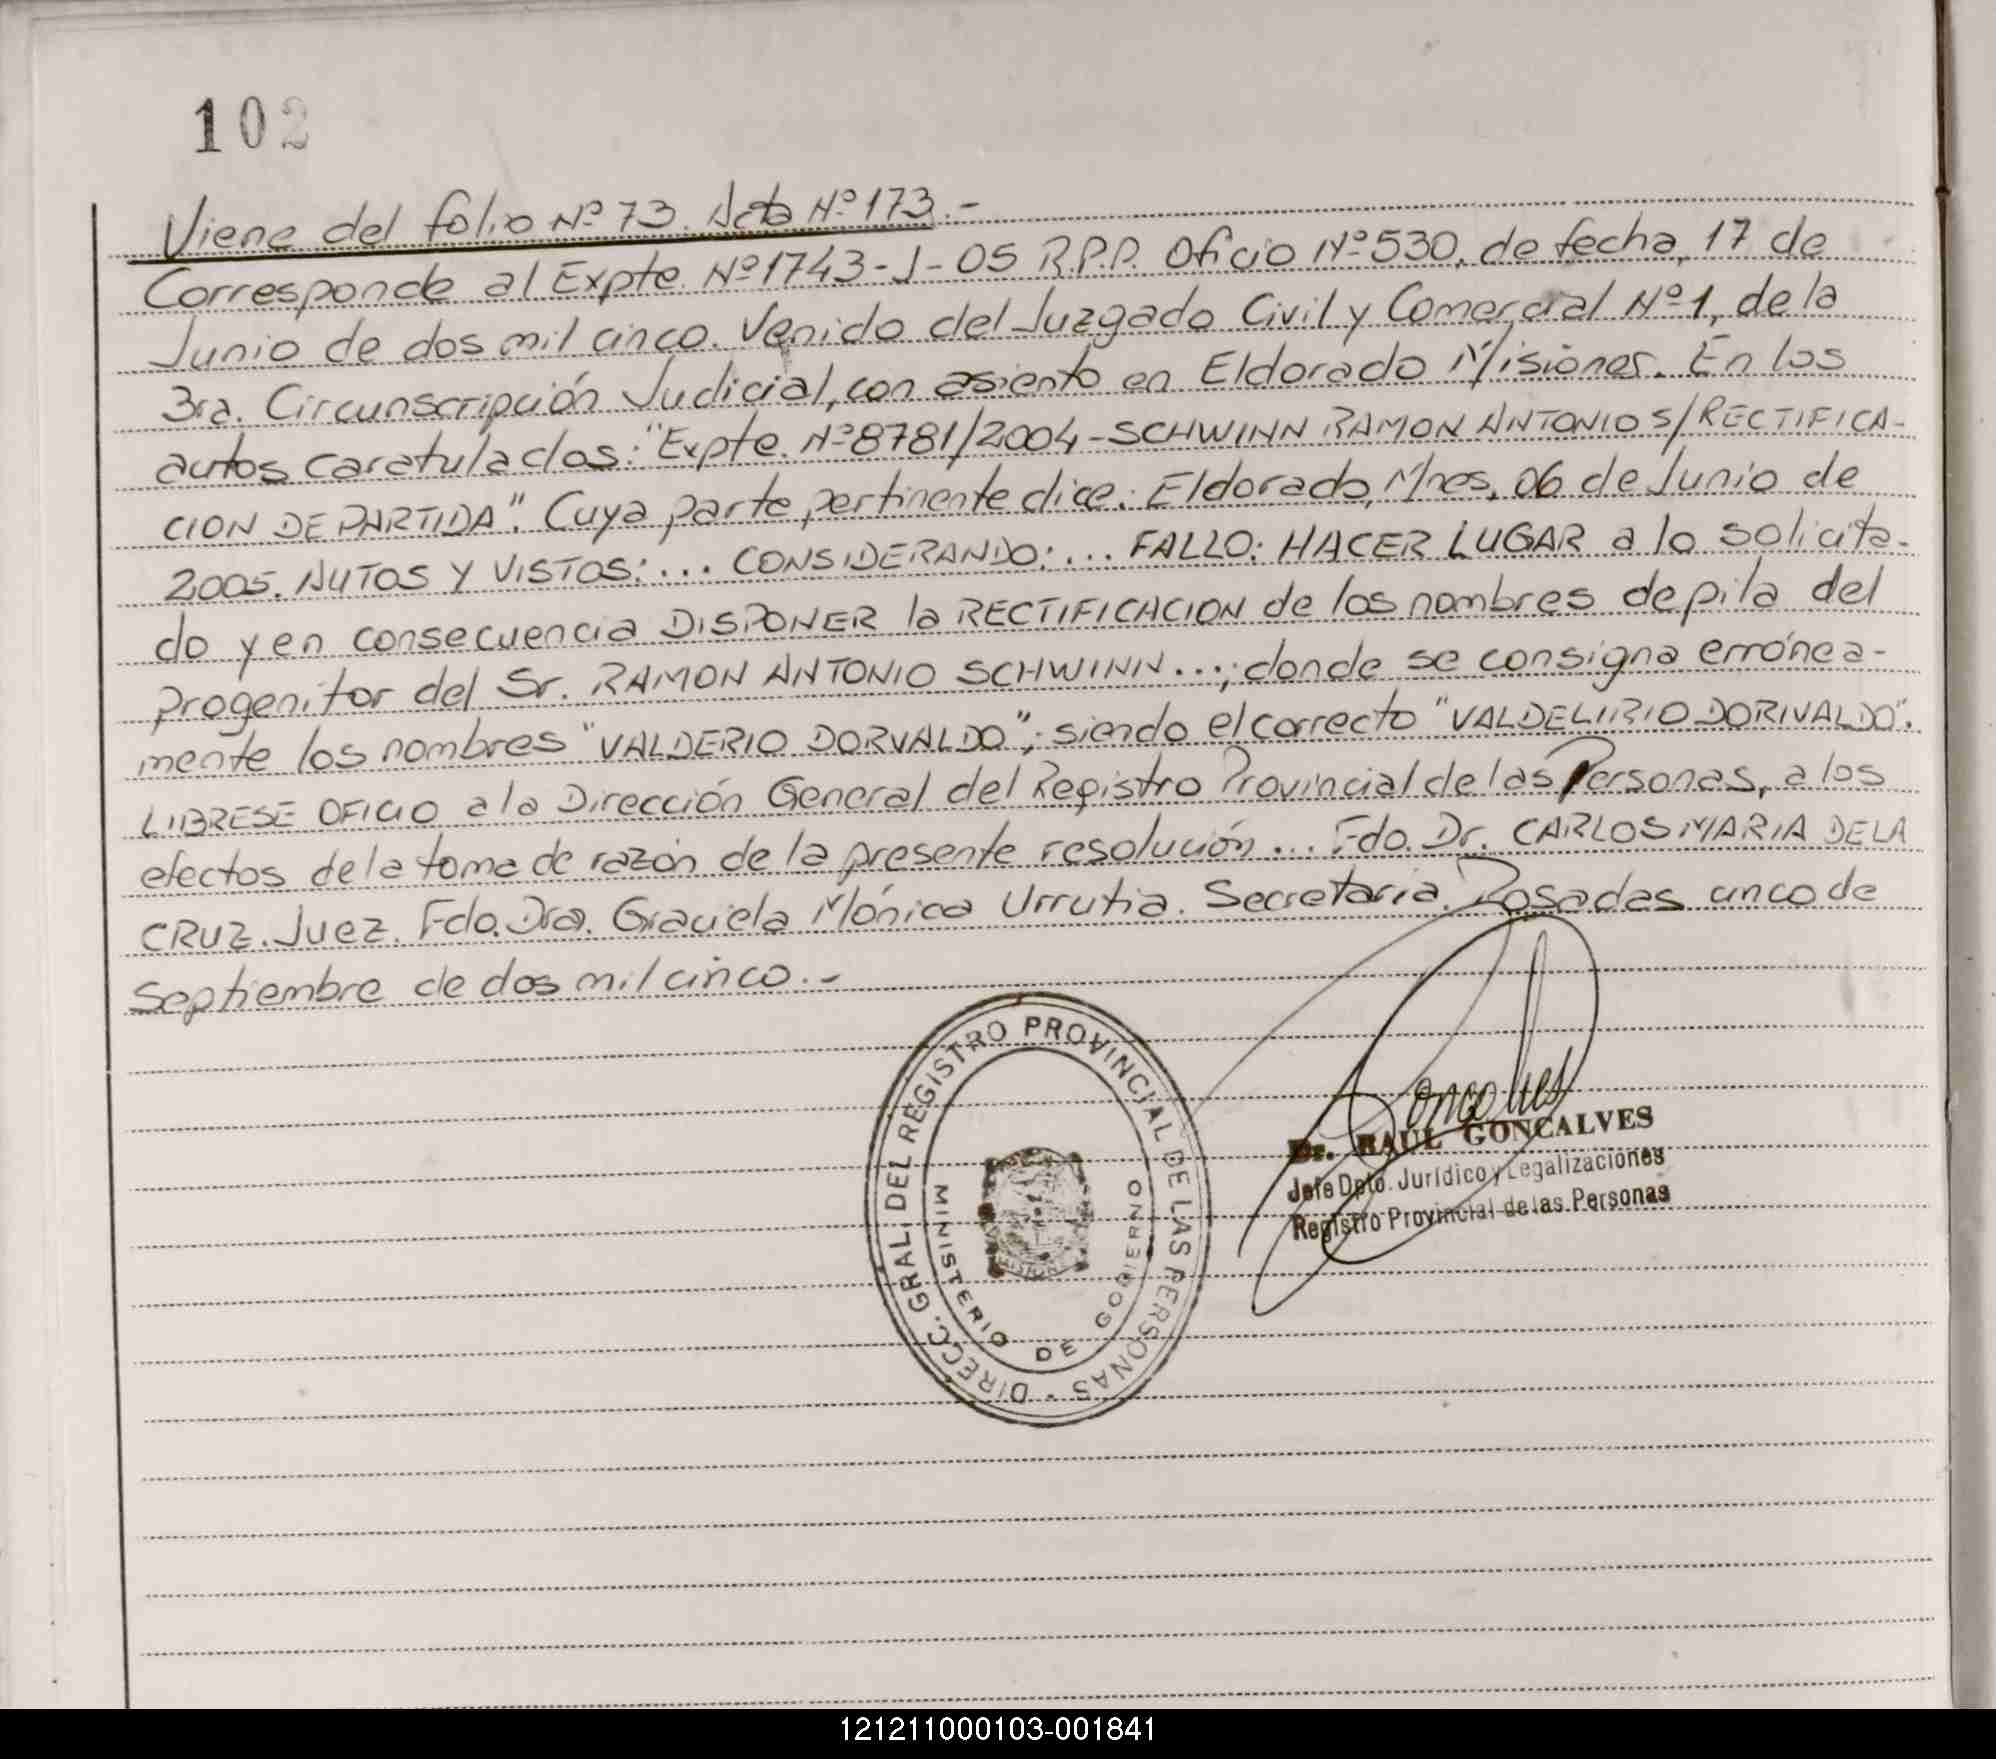 102
Viene del folio Nº 73. Acta Nº 173.-
Corresponde al Expte. Nº 1743-J-05 R.P.P. Oficio Nº 530, de fecha, 17 de
Junio de dos mil cinco. Venido del Juzgado Civil y Comercial Nº 1, de la
3ra. Circunscripción Judicial, con asiento en Eldorado Misiones. En los
autos caratulados: "Expte. Nº 8781/2004-SCHWINN RAMON ANTONIO S/RECTIFICA-
CION DE PARTIDA". Cuya parte pertinente dice: Eldorado, Mnes, 06 de Junio de
2005. AUTOS Y VISTOS:... CONSIDERANDO:... FALLO: HACER LUGAR a lo solicita-
do y en consecuencia DISPONER la RECTIFICACION de los nombres de pila del
progenitor del Sr. RAMON ANTONIO SCHWINN...; donde se consigna errónea-
mente los nombres "VALDERIO DORVALDO"; siendo el correcto "VALDELIRIO DORIVALDO".
LIBRESE OFICIO a la Dirección General del Registro Provincial de las Personas, a los
efectos de la toma de razón de la presente resolución... Fdo. Dr. CARLOS MARIA DE LA
CRUZ. Juez. Fdo. Dra. Graciela Mónica Urrutia. Secretaria. Posadas cinco de
Septiembre de dos mil cinco.-
DIRECC. GRAL. DEL REGISTRO PROVINCIAL DE LAS PERSONAS
MINISTERIO DE GOBIERNO
MISIONES
Goncalves
Dr. RAUL GONCALVES
Jefe Dpto. Jurídico y Legalizaciones
Registro Provincial de las Personas
121211000103-001841